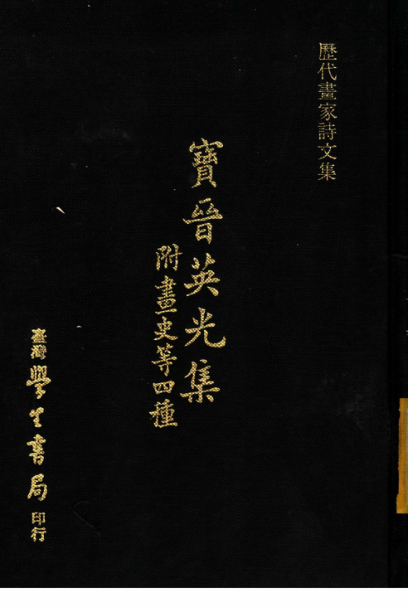 歷代畫家詩文集
寶晉英光集
附畫史等四種
臺灣學生書局印行